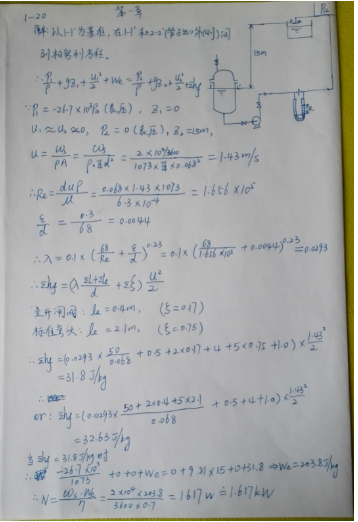 1-20 第一章
P2
15m
解:以1-1'为基准,在1-1'和2-2'(管子出口外侧)间
列柏努利方程。
∵ P₁/ρ + gz₁ + u₁²/2 + We = P₂/ρ + gz₂ + u₂²/2 + Σhf
∵ P₁ = -26.7×10³Pa (表压), z₁ = 0
u₁ ≈ u₂ ≈ 0, P₂ = 0 (表压), z₂ = 15m,
u = ws/ρA = ws/(ρ·π/4 d²) = (2×10⁴/3600)/(1073×π/4×0.068²) = 1.43 m/s
∴ Re = duρ/μ = (0.068×1.43×1073)/(6.3×10⁻⁴) = 1.656×10⁵
ε/d = 0.3/68 = 0.0044
∴ λ = 0.1×(68/Re + ε/d)^0.23 = 0.1×(68/1.656×10⁵ + 0.0044)^0.23 = 0.0293
∴ Σhf = (λ (Σl+Σle)/d + Σξ) u²/2
全开闸阀: le = 0.4m, (ξ=0.17)
标准弯头: le = 2.1m, (ξ=0.75)
∴ Σhf = (0.0293× 50/0.068 + 0.5 + 2×0.17 + 4 + 5×0.75 + 1.0) × 1.43²/2
= 31.8 J/kg
or: Σhf = (0.0293× (50+2×0.4+5×2.1)/0.068 + 0.5+4+1.0) × 1.43²/2
= 32.63 J/kg
当Σhf = 31.8 J/kg时
-26.7×10³/1073 + 0 + 0 + We = 0 + 9.81×15 + 0 + 31.8 ⇒ We = 203.8 J/kg
∴ N = We·Ws/η = (2×10⁴×203.8)/(3600×0.7) = 1617 w ≐ 1.617 kW